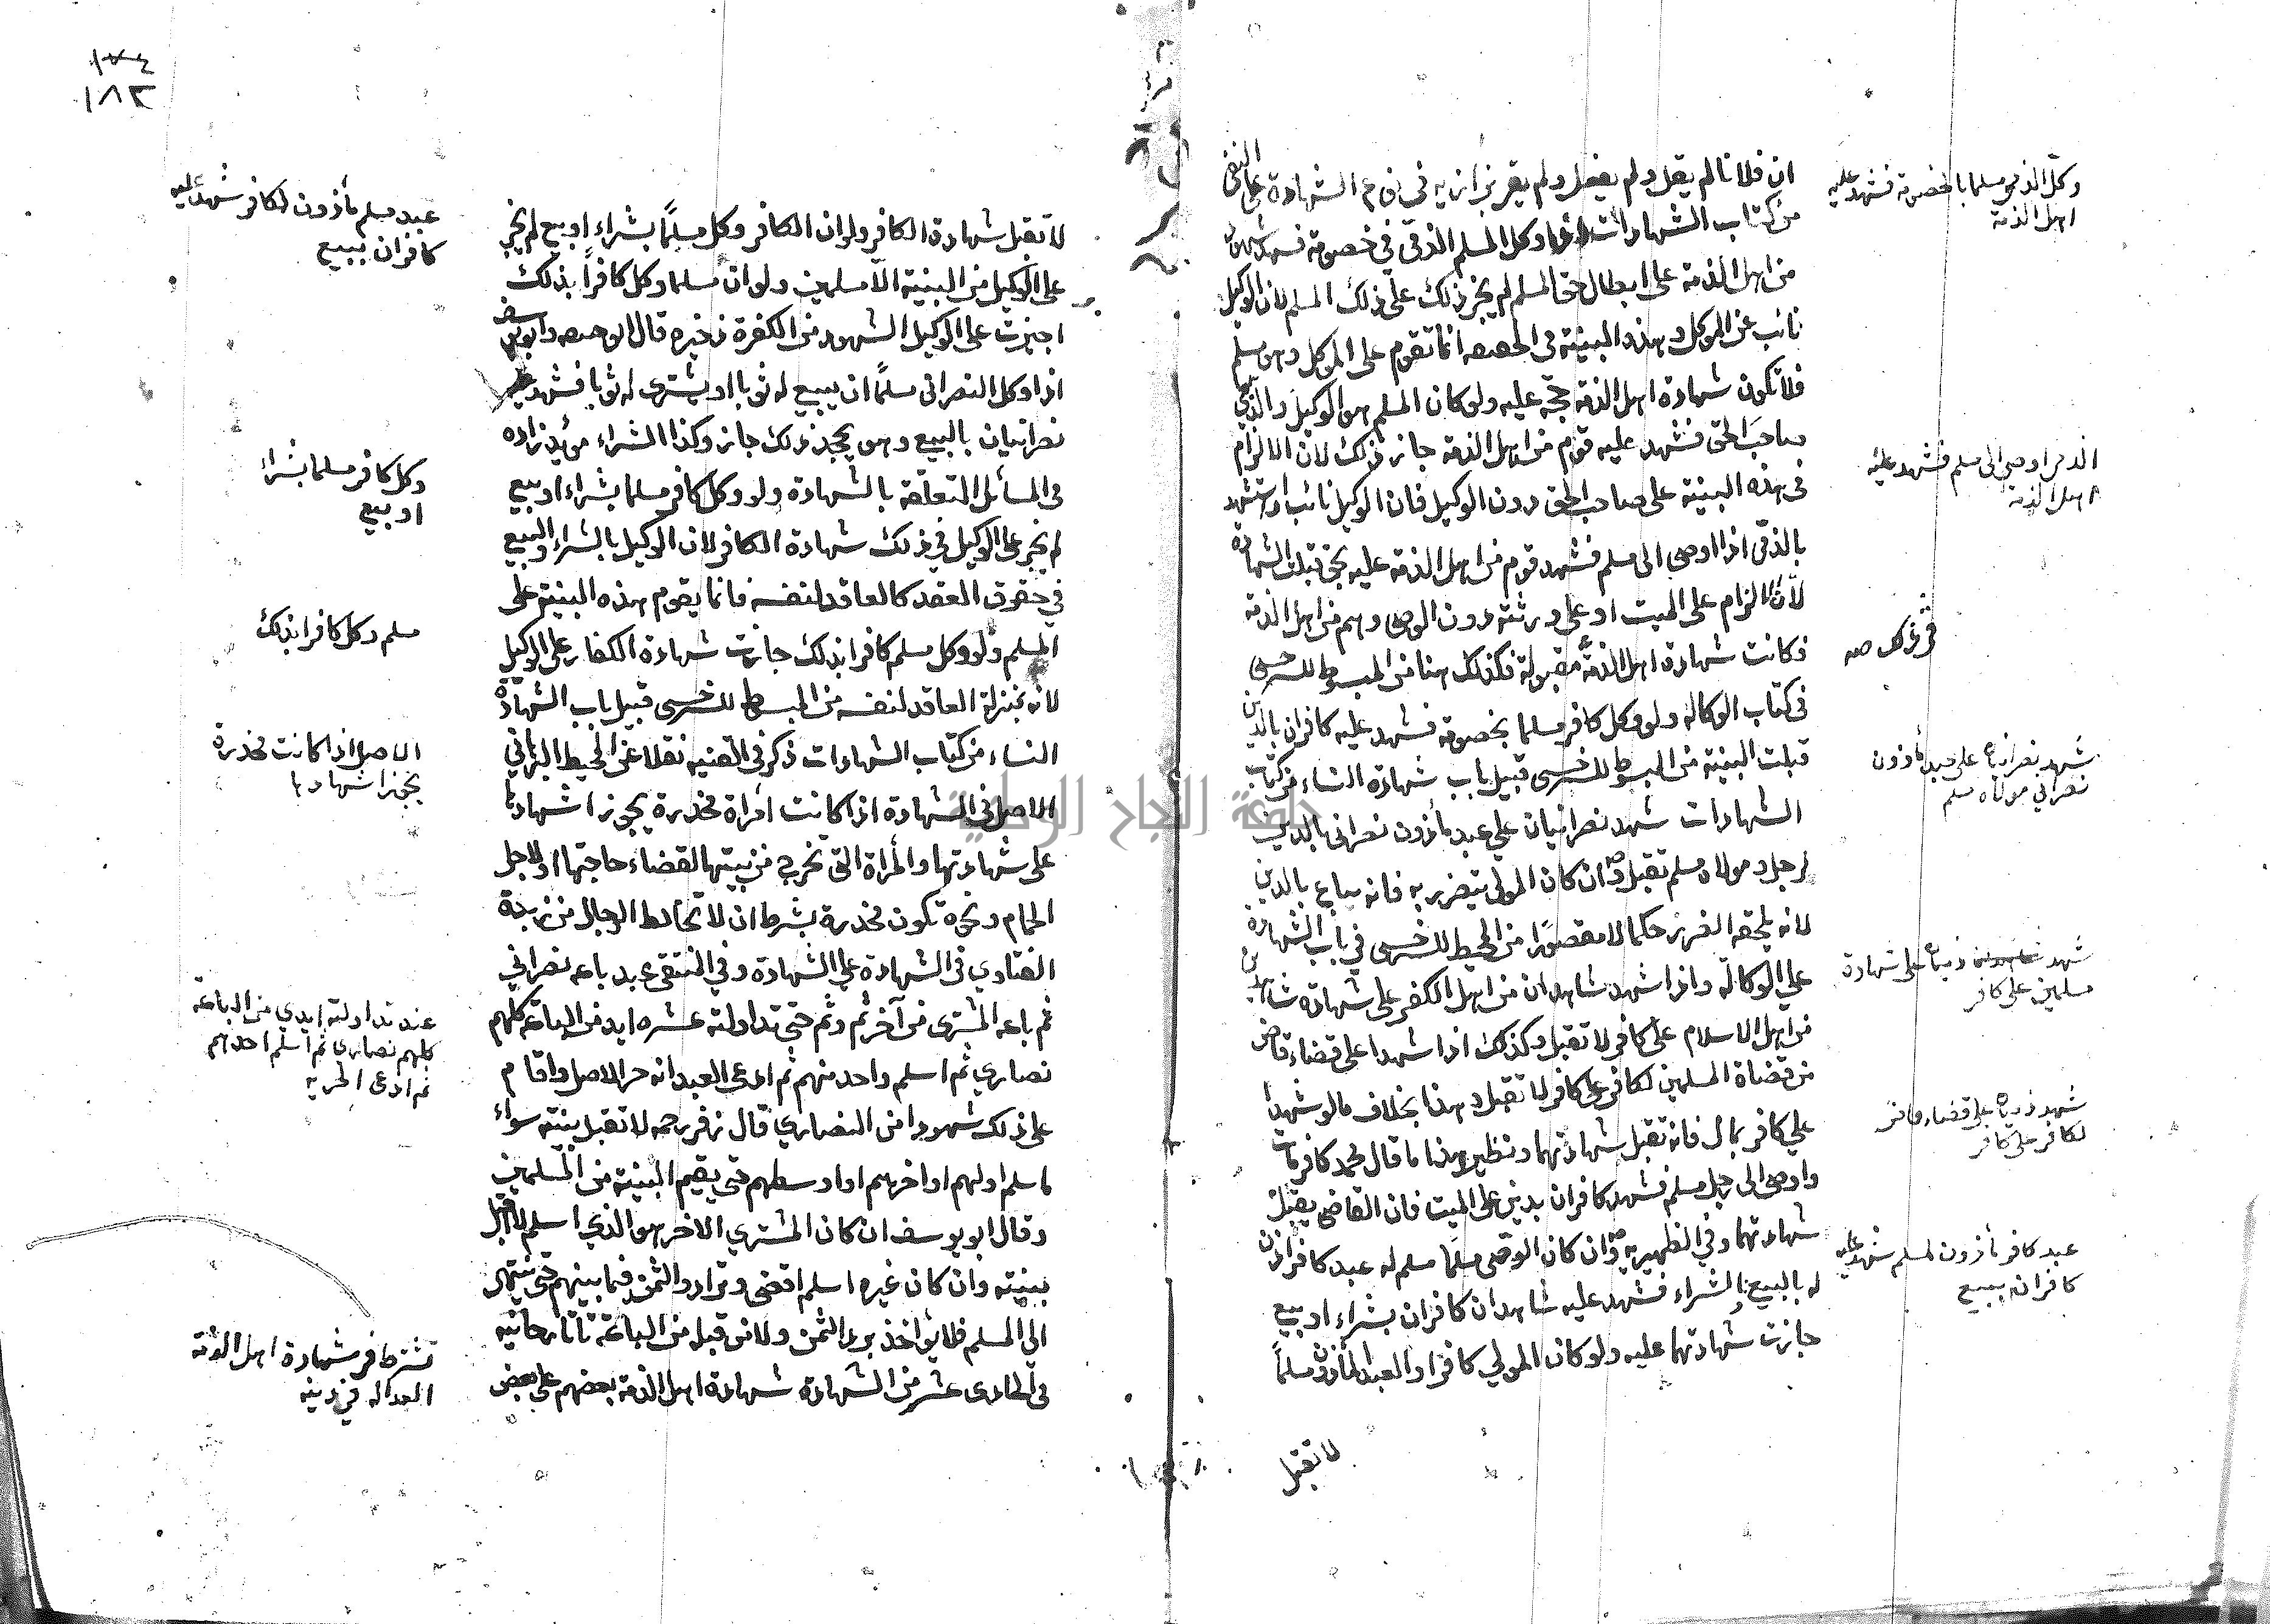 ان فلانا لم يقل ولم يفعل ولم يقر بزازيه في نوع الشهادة على النفي
من كتاب الشهادات اذا وكل المسلم الذمي في خصومة فشهد شهود
من اهل الذمة على ابطال حق المسلم لم يجز ذلك على ذلك المسلم لان الوكيل
نائب عن الموكل وهذه البينة في الحصه انما تقوم على الموكل وهو مسلم
فلا تكون شهادة اهل الذمة حجة عليه ولو كان المسلم هو الوكيل والذمي
صاحب الحق فشهد عليه قوم من اهل الذمة جاز ذلك لان الالزام
في هذه البينة على صاحب الحق دون الوكيل فان الوكيل نائب واستشهد
بالذمي اذا اوصى الى مسلم فشهد قوم من اهل الذمة عليه بحق قبلت الشهادة
لان الالزام على الميت او على ورثته دون الوصي وهم من اهل الذمة
فكانت شهادة اهل الذمة مقبولة فكذلك هنا من المبسوط للسرخسي
في كتاب الوكالة ولو وكل كافر مسلما بخصومة فشهد عليه كافران بالدين
قبلت البينة من المبسوط للسرخسي قبيل باب شهادة النساء من كتاب
الشهادات شهد نصرانيان على عبد مأذون نصراني بالدين
لرجل ومولاه مسلم تقبل وان كان المولى يتضرر به فانه يباع بالدين
لانه يلحقه الضرر حكما لا مقصورا من المحيط للسرخسي في باب الشهادة
على الوكالة واذا شهد شاهدان من اهل الكفر على شهادة شاهدين
من اهل الاسلام على كافر لا تقبل وكذلك اذا شهدا على قضاء قاض
من قضاة المسلمين لكافر على كافر لا تقبل وهذا بخلاف مالو شهدا
على كافر بمال فانه تقبل شهادتهما ونظير هذا ما قال محمد كافر مات
واوصى الى رجل مسلم فشهد كافران بدين على الميت فان القاضي يقبل
شهادتهما وفي الظهيريه وان كان الوصي مسلما مسلم له عبد كافر اذن
له بالبيع والشراء فشهد عليه شاهدان كافران بشراء او بيع
جازت شهادتهما عليه ولو كان المولى كافرا والعبد المأذون مسلماً
لا تقبل
وكل الذمي مسلما بالخصومة فشهد عليه
اهل الذمة
الذمي اوصى الى مسلم فشهد عليه
اهل الذمة
شهد نصرانيان على عبد مأذون
نصراني مولاه مسلم
شهد ذميان على شهادة
مسلمين على كافر
شهد ذميان على قضاء قاض
لكافر على كافر
عبد كافر مأذون لمسلم شهد عليه
كافران ببيع
١٧٤
١٨٢
لا تقبل شهادة الكافر ولو ان الكافر وكل مسلماً بشراء او بيع لم يجز
على الوكيل من البينة الا مسلمين ولو ان مسلما وكل كافراً بذلك
اجيزت على الوكيل الشهود من الكفرة ذخيره قال ابو حنيفه وابو يوسف
اذا وكل النصراني مسلماً ان يبيع له ثوبا او يشتري له ثوبا فشهد عليه
نصرانيان بالبيع وهو يجحد ذلك جاز وكذا الشراء مؤيد زاده
في المسائل المتعلقة بالشهادة ولو وكل كافر مسلما بشراء او بيع
لم يجز على الوكيل في ذلك شهادة الكافر لان الوكيل بالشراء والبيع
في حقوق العقد كالعاقد لنفسه فانما يقوم هذه البينة على
المسلم ولو وكل مسلم كافرا بذلك جازت شهادة الكفار على الوكيل
لانه بمنزلة العاقد لنفسه من المبسوط للسرخسي قبيل باب الشهادة
النساء من كتاب الشهادات ذكر في القنيه نقلا عن المحيط البرهاني
الاصل في الشهادة اذا كانت امرأة مخدرة يجوز اشهادها
على شهادتها والمرأة التي تخرج من بيتها لقضاء حاجتها او لاجل
الحمام ونحوه تكون مخدرة بشرط ان لا تخالط الرجال من زبدة
الفتاوي في الشهادة على الشهادة وفي المنتقى عبد باعه نصراني
ثم باعه المشترى من آخر ثم وثم حتى تداولته عشره ايد من الباعة كلهم
نصاري ثم اسلم واحد منهم ثم ادعى العبد انه حر الاصل واقام
على ذلك شهودا من النصاري قال زفر رحمه لا تقبل بينته سواء
اسلم اولهم او اخرهم او اوسطهم حتى يقيم البينة من المسلمين
وقال ابو يوسف ان كان المشتري الاخر هو الذي اسلم لا اقبل
بينته وان كان غيره اسلم اقضى وتراد والثمن فيما بينهم حتى ينتهى
الى المسلم فلا يؤاخذ برد الثمن ولا من قبله من الباعة تاتارخانيه
في الحادى عشر من الشهادة شهادة اهل الذمة بعضهم على بعض
عبد مسلم مأذون لكافر شهد عليه
كافران ببيع
وكل كافر مسلما بشراء
او بيع
مسلم وكل كافرا بذلك
الاصل اذا كانت مخدرة
يجوز اشهادها
عبد تداولته ايدي من الباعة
كلهم نصاري ثم اسلم احدهم
ثم ادعى الحرية
تشترط في شهادة اهل الذمة
العدالة في دينه